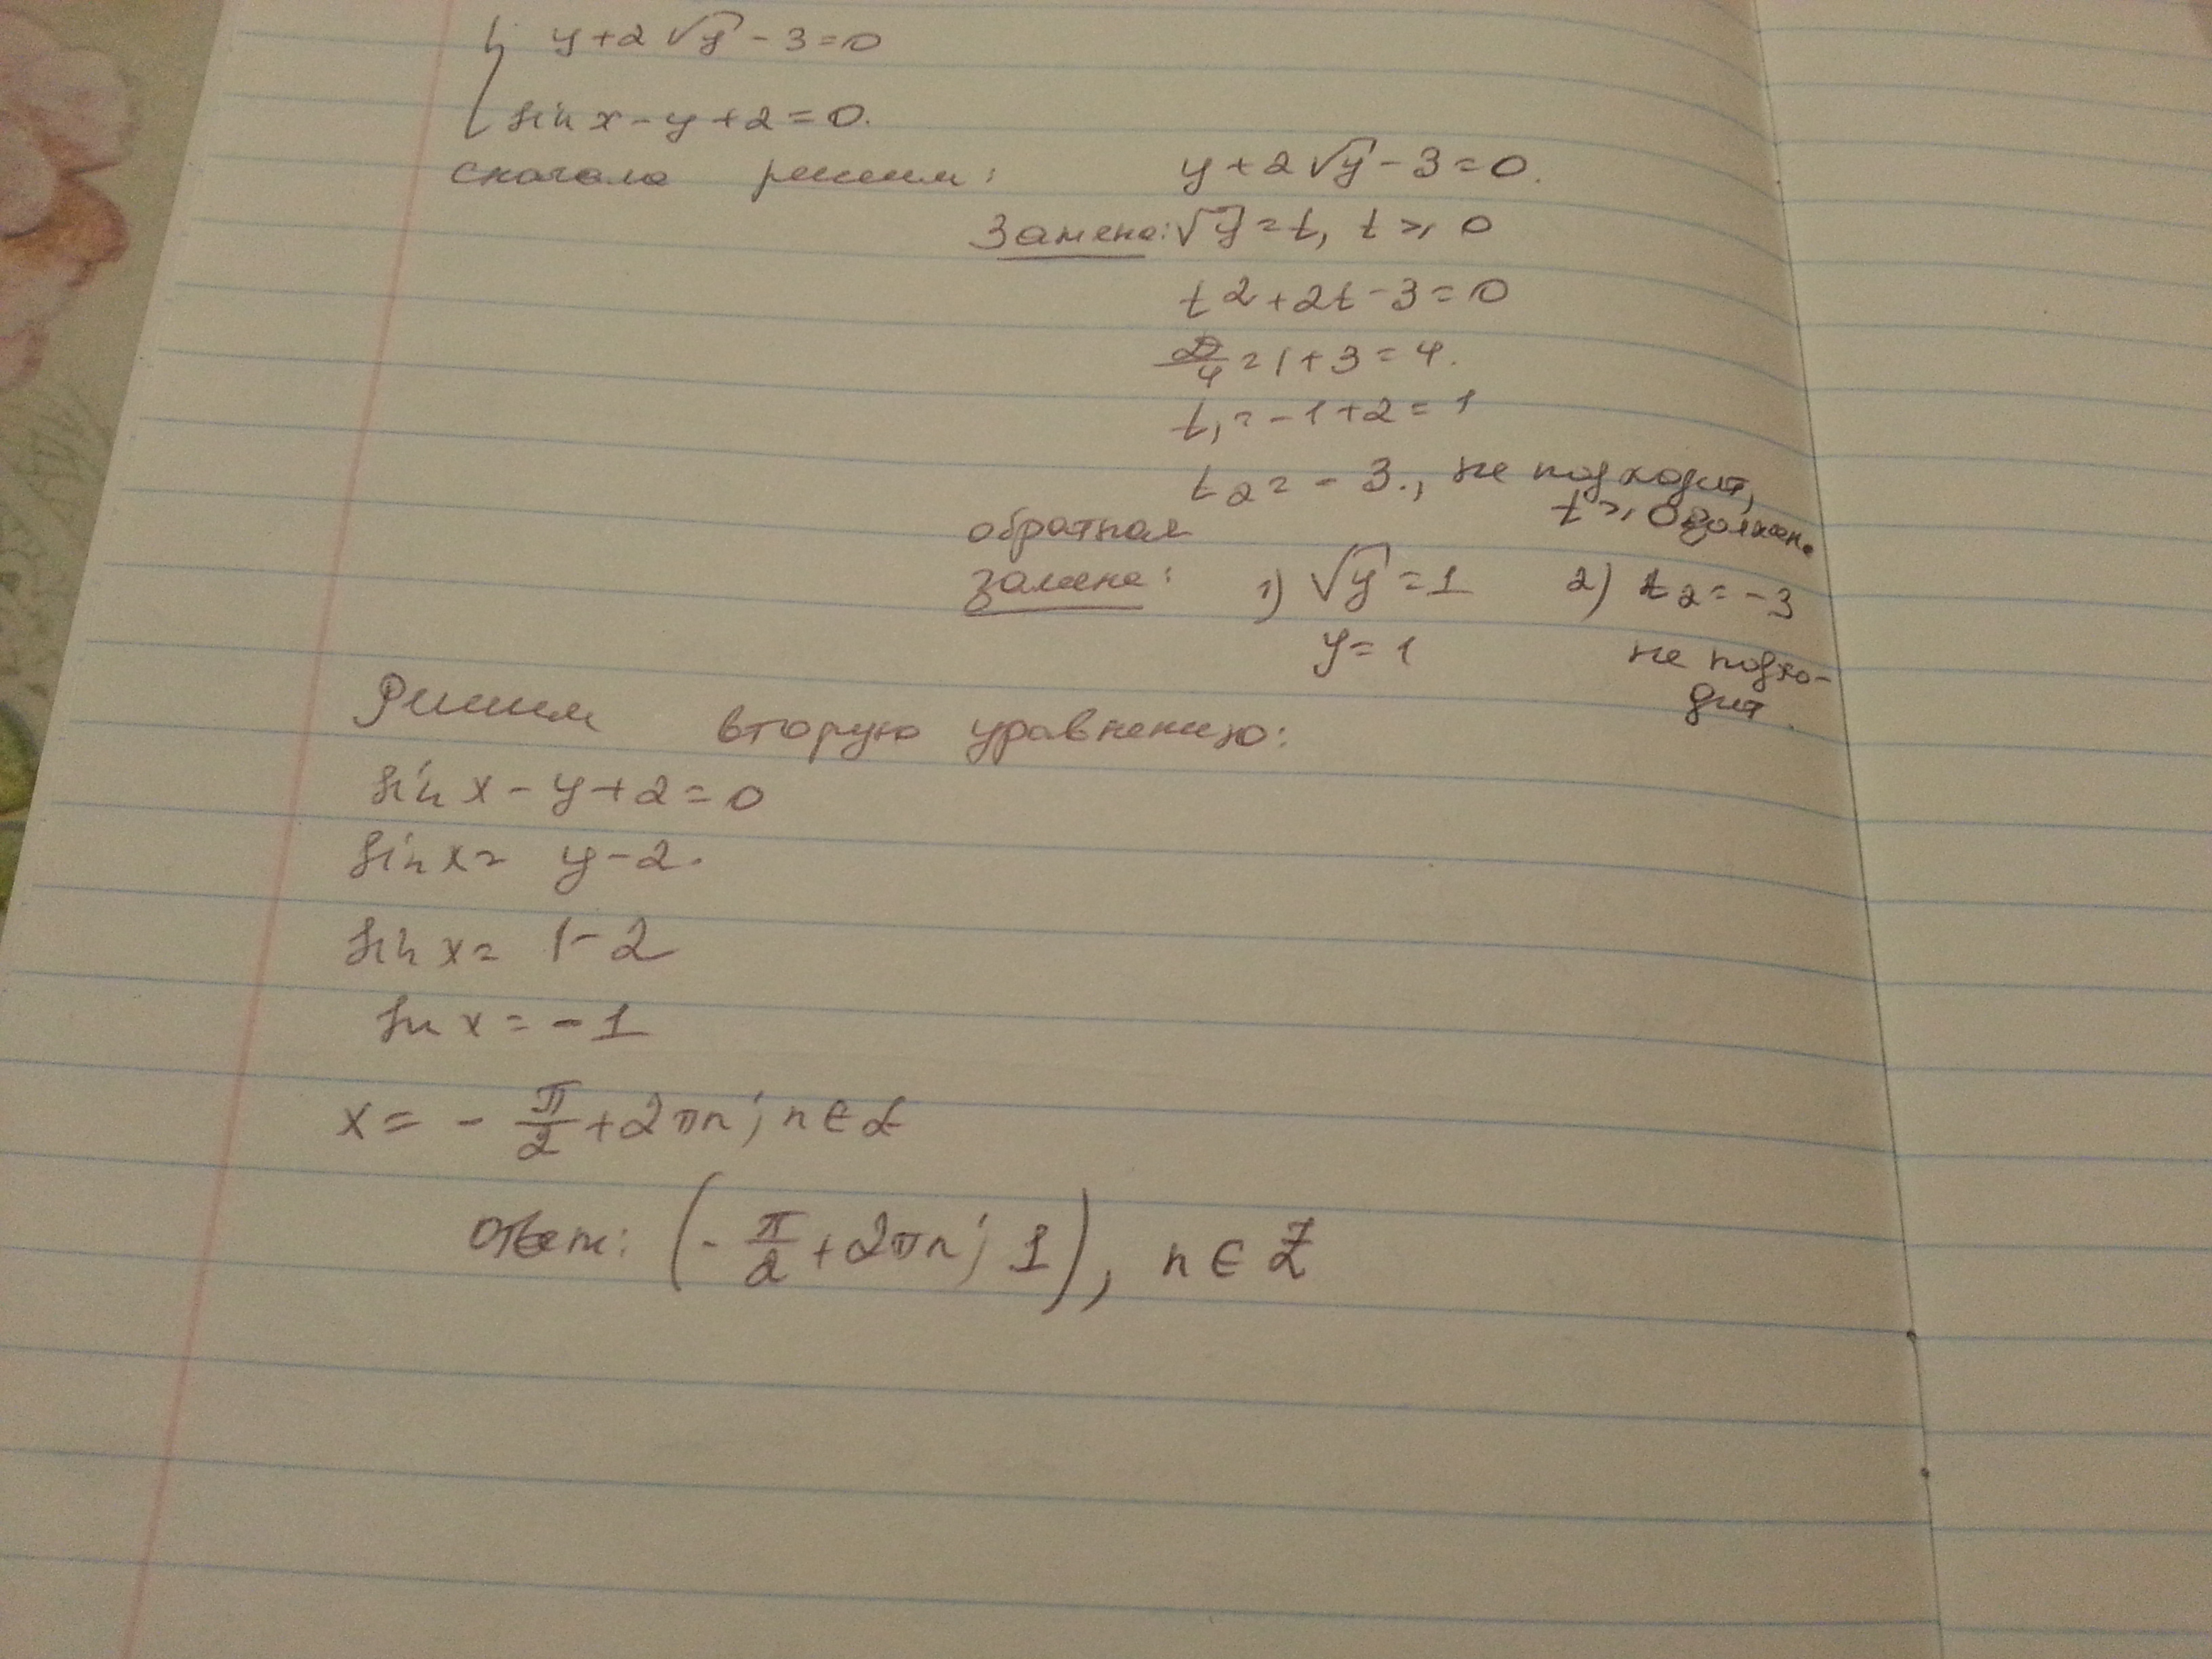 { y+2√y-3=0
sin x-y+2=0.
сначала решим: y+2√y-3=0.
Замена: √y=t, t⩾0
t²+2t-3=0
D/4=1+3=4.
t₁=-1+2=1
t₂=-3., не подходит,
t⩾0 должен.
обратная
замена: 1) √y=1 2) t₂=-3
y=1 не подхо-
дит.
Решим вторую уравнению:
sin x-y+2=0
sin x= y-2.
sin x= 1-2
sin x=-1
x= -π/2+2πn; n∈Z
Ответ: (-π/2+2πn; 1), n∈Z